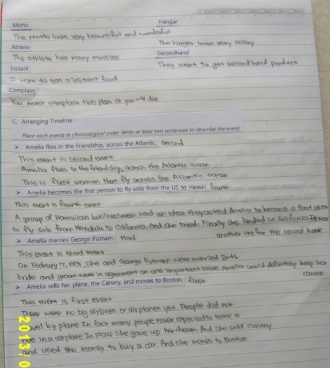 Motto
Hangar
This motto looks very beautiful and wonderful
Athlete
This hangar looks very scary
The athlete has many muscles
Secondhand
Instant
They want to get secondhand product
I want to eat a instant food
Complain
You never complain this plan or you will die
C. Arranging Timeline
Place each events in chronological order. Write at least two sentences to describe the event.
➢ Amelia flies in the Friendship, across the Atlantic. second
This event is second event
Amelia flies in the friendship, across the Atlantic ocean
This is first woman that fly across the Atlantic ocean
➢ Amelia becomes the first person to fly solo from the US to Hawaii. fourth
This event is fourth event
A group of Hawaiian businessmen had an idea they asked Amelia to become a first person
to fly solo from Honolulu to California. And she tried. Finally she landed in California
another one for the round back
➢ Amelia marries George Putnam. third
This event is third event
On February 7, 1931, she and George Putnam were married. Both
bride and groom were in agreement on one important issue. Amelia would definitely keep her
career
➢ Amelia sells her plane, the Canary, and moves to Boston. first
This event is first event
There were no big airlines or airplanes yet. People did not
travel by plane. In fact many people never expected to take a
ride in a airplane. In 1924 she gave up her dream. And she sold canary
and used the money to buy a car. And she moves to Boston